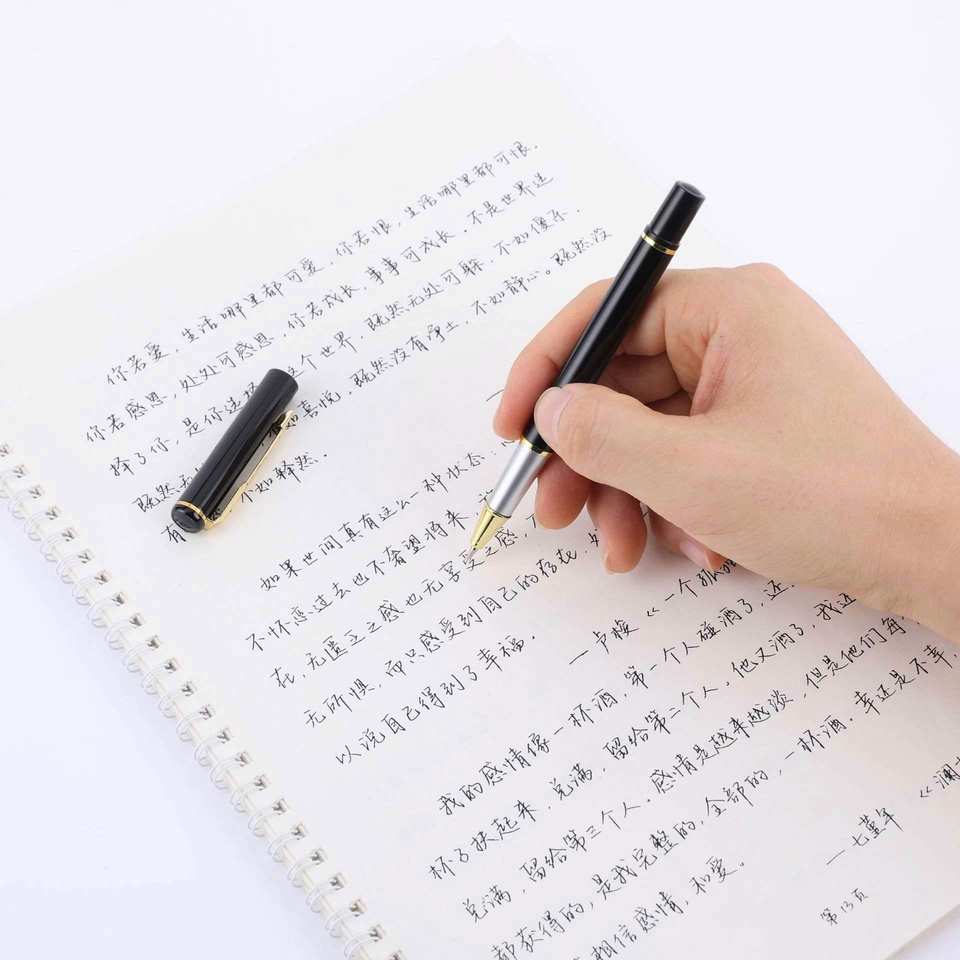 你若爱，生活哪里都可爱，你若恨，生活哪里都可恨，
你若感恩，处处可感恩，你若成长，事事可成长，不是世界选
择了你，是你选 这个世界，既然无处可躲，不如傻乐，
既然无 如喜悦，既然没有净土，不如静心。既然没
有 不如释然。
如果世间真有这么一种状态：
不怀恋过去也不奢望将来，
在，无匮乏之感也无享受之感，
无所惧，而只感受到自己的存在，
以说自己得到了幸福。
一卢梭《一个孤独
我的感情像一杯酒，第一个人碰洒了，还
杯子扶起来，兑满，留给第二个人，他又洒了，我还
兑满，留给第三个人。感情是越来越淡，但是他们每
都获得的，是我完整的，全部的，一杯酒，幸还是不幸，
相信感情，和爱。
一七堇年《澜
第13页